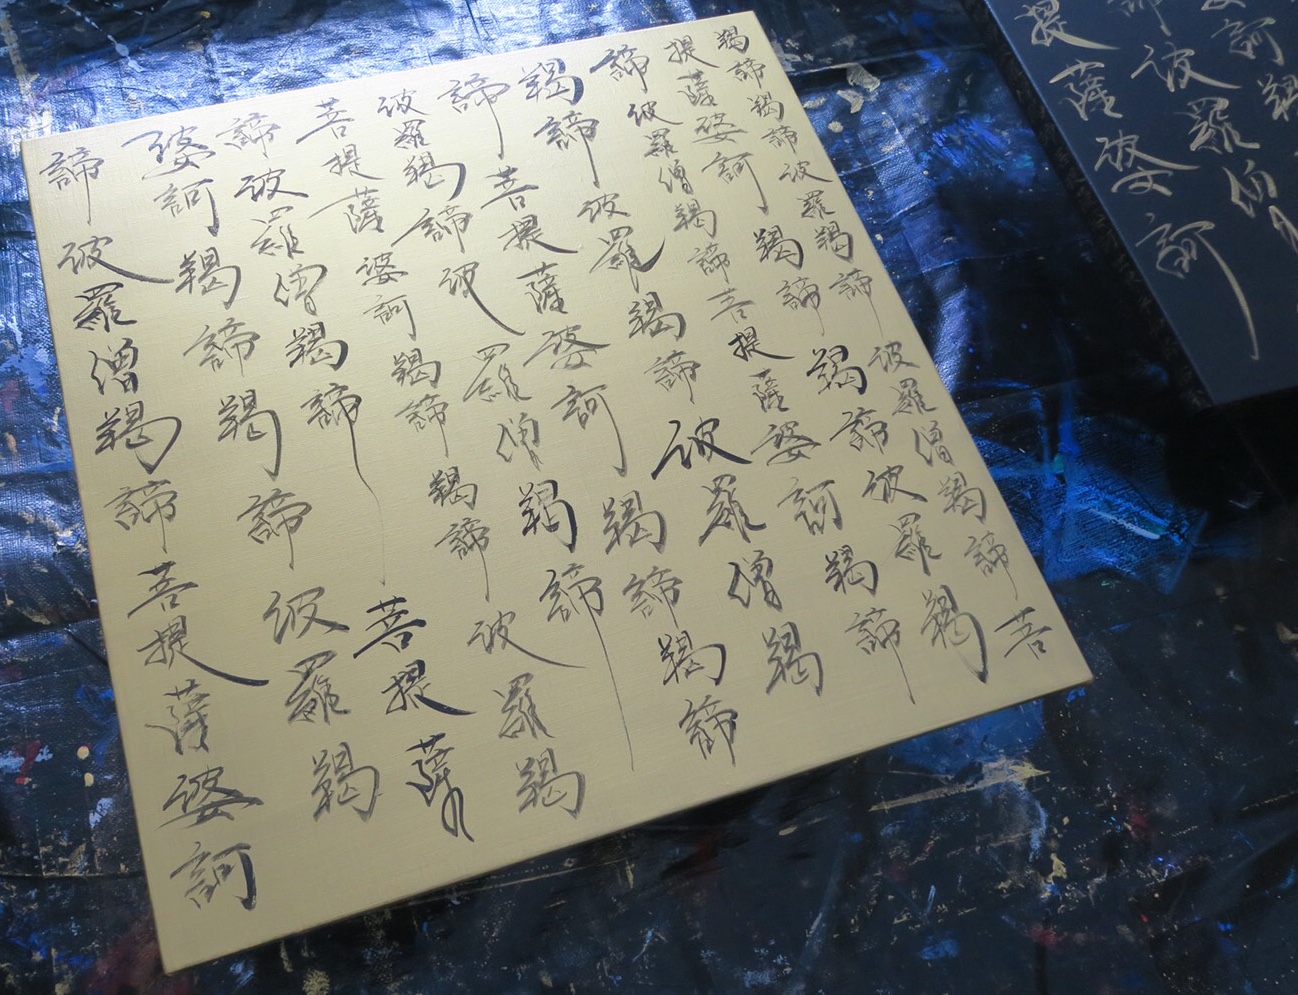 訶羯
波羅僧
提薩婆訶
羯諦羯諦波羅羯諦波羅僧羯諦菩
提薩婆訶羯諦羯諦波羅羯
諦波羅僧羯諦菩提薩婆訶羯諦
羯諦波羅羯諦波羅僧羯
諦菩提薩婆訶羯諦羯諦
波羅羯諦波羅僧羯諦
菩提薩婆訶羯諦羯諦波羅羯
諦波羅僧羯諦菩提薩
婆訶羯諦羯諦波羅羯
諦波羅僧羯諦菩提薩婆訶